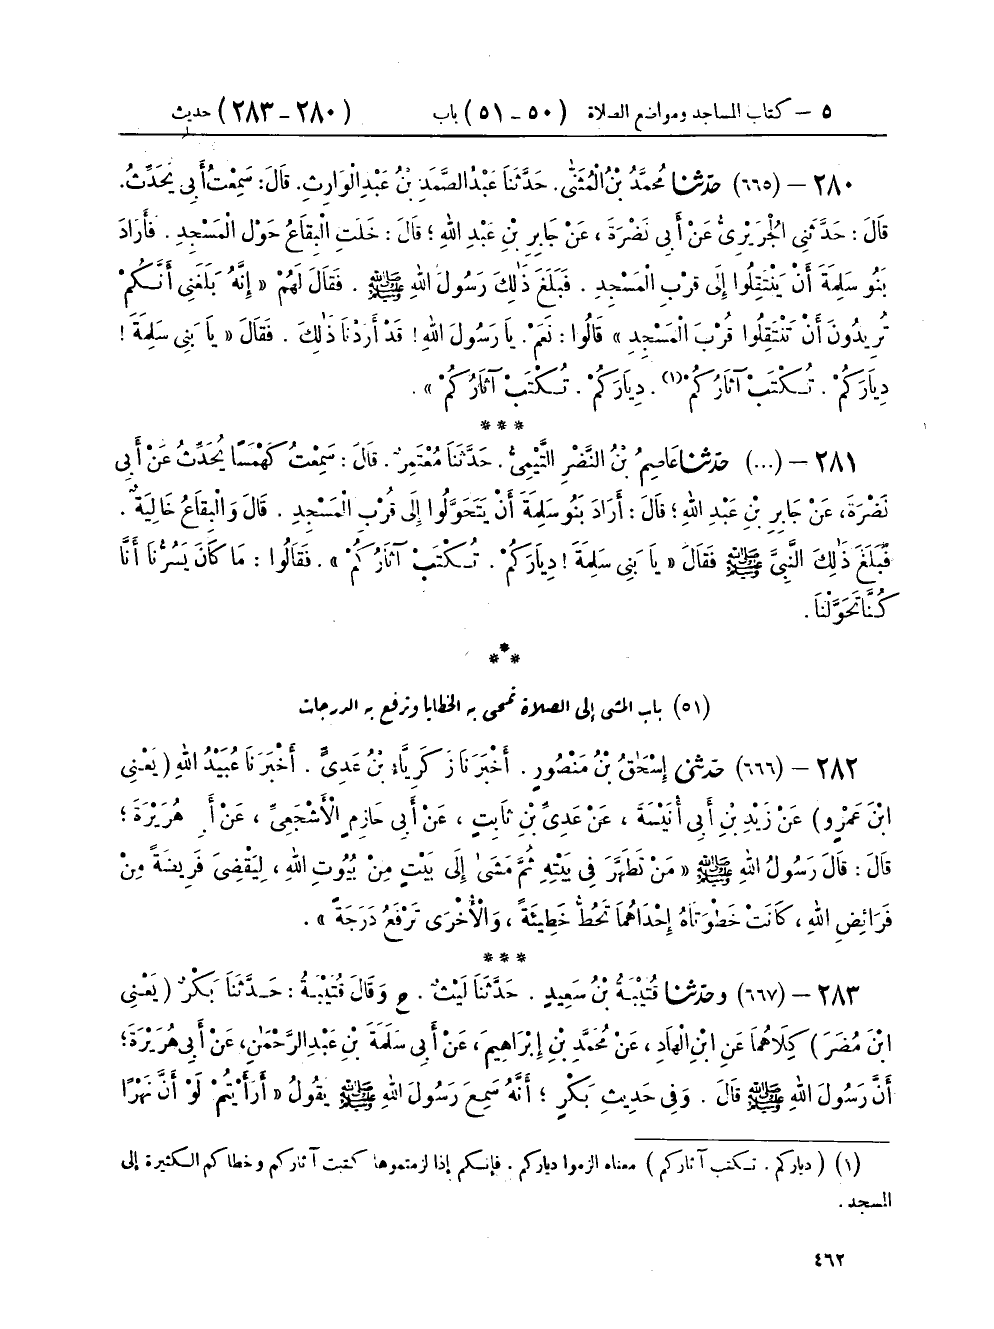 ٥ – كتاب المساجد ومواضع الصلاة (٥٠ – ٥١) باب (٢٨٠ – ٢٨٣) حديث
٢٨٠ – (٦٦٥) حَدَّثَنَا مُحَمَّدُ بْنُ الْمُثَنَّىٰ. حَدَّثَنَا عَبْدُ الصَّمَدِ بْنُ عَبْدِ الْوَارِثِ. قَالَ: سَمِعْتُ أَبِي يُحَدِّثُ.
قَالَ: حَدَّثَنِي الْجُرَيْرِيُّ عَنْ أَبِي نَضْرَةَ، عَنْ جَابِرِ بْنِ عَبْدِ اللهِ؛ قَالَ: خَلَتِ الْبِقَاعُ حَوْلَ الْمَسْجِدِ. فَأَرَادَ
بَنُو سَلِمَةَ أَنْ يَنْتَقِلُوا إِلَى قُرْبِ الْمَسْجِدِ. فَبَلَغَ ذٰلِكَ رَسُولَ اللهِ ﷺ. فَقَالَ لَهُمْ « إِنَّهُ بَلَغَنِي أَنَّكُمْ
تُرِيدُونَ أَنْ تَنْتَقِلُوا قُرْبَ الْمَسْجِدِ » قَالُوا: نَعَمْ. يَا رَسُولَ اللهِ! قَدْ أَرَدْنَا ذٰلِكَ. فَقَالَ « يَا بَنِي سَلِمَةَ!
دِيَارَكُمْ. تُكْتَبْ آثَارُكُمْ(١). دِيَارَكُمْ. تُكْتَبْ آثَارُكُمْ ».
***
٢٨١ – (...) حَدَّثَنَا عَاصِمُ بْنُ النَّضْرِ التَّيْمِيُّ. حَدَّثَنَا مُعْتَمِرٌ. قَالَ: سَمِعْتُ كَهْمَسًا يُحَدِّثُ عَنْ أَبِي
نَضْرَةَ، عَنْ جَابِرِ بْنِ عَبْدِ اللهِ؛ قَالَ: أَرَادَ بَنُو سَلِمَةَ أَنْ يَتَحَوَّلُوا إِلَى قُرْبِ الْمَسْجِدِ. قَالَ وَالْبِقَاعُ خَالِيَةٌ.
فَبَلَغَ ذَٰلِكَ النَّبِيَّ ﷺ فَقَالَ « يَا بَنِي سَلِمَةَ! دِيَارَكُمْ. تُكْتَبْ آثَارُكُمْ ». فَقَالُوا: مَا كَانَ يَسُرُّنَا أَنَّا
كُنَّا تَحَوَّلْنَا.
***
(٥١) باب المشي إلى الصلاة تمحى به الخطايا وترفع به الدرجات
٢٨٢ – (٦٦٦) حَدَّثَنِي إِسْحَٰقُ بْنُ مَنْصُورٍ. أَخْبَرَنَا زَكَرِيَّاءُ بْنُ عَدِيٍّ. أَخْبَرَنَا عُبَيْدُ اللهِ (يَعْنِي
ابْنَ عَمْرٍو) عَنْ زَيْدِ بْنِ أَبِي أُنَيْسَةَ، عَنْ عَدِيِّ بْنِ ثَابِتٍ، عَنْ أَبِي حَازِمٍ الْأَشْجَعِيِّ، عَنْ أَبِي هُرَيْرَةَ؛
قَالَ: قَالَ رَسُولُ اللهِ ﷺ « مَنْ تَطَهَّرَ فِي بَيْتِهِ ثُمَّ مَشَىٰ إِلَى بَيْتٍ مِنْ بُيُوتِ اللهِ، لِيَقْضِيَ فَرِيضَةً مِنْ
فَرَائِضِ اللهِ، كَانَتْ خَطْوَتَاهُ إِحْدَاهُمَا تَحُطُّ خَطِيئَةً، وَالْأُخْرَى تَرْفَعُ دَرَجَةً ».
***
٢٨٣ – (٦٦٧) وحَدَّثَنَا قُتَيْبَةُ بْنُ سَعِيدٍ. حَدَّثَنَا لَيْثٌ. ح وَقَالَ قُتَيْبَةُ: حَدَّثَنَا بَكْرٌ (يَعْنِي
ابْنَ مُضَرَ) كِلَاهُمَا عَنِ ابْنِ الْهَادِ، عَنْ مُحَمَّدِ بْنِ إِبْرَاهِيمَ، عَنْ أَبِي سَلَمَةَ بْنِ عَبْدِ الرَّحْمَٰنِ، عَنْ أَبِي هُرَيْرَةَ؛
أَنَّ رَسُولَ اللهِ ﷺ قَالَ. وَفِي حَدِيثِ بَكْرٍ؛ أَنَّهُ سَمِعَ رَسُولَ اللهِ ﷺ يَقُولُ « أَرَأَيْتُمْ لَوْ أَنَّ نَهْرًا
(١) (دياركم. تكتب آثاركم) معناه الزموا دياركم. فإنكم إذا لزمتموها كتبت آثاركم وخطاكم الكثيرة إلى
المسجد.
٤٦٢